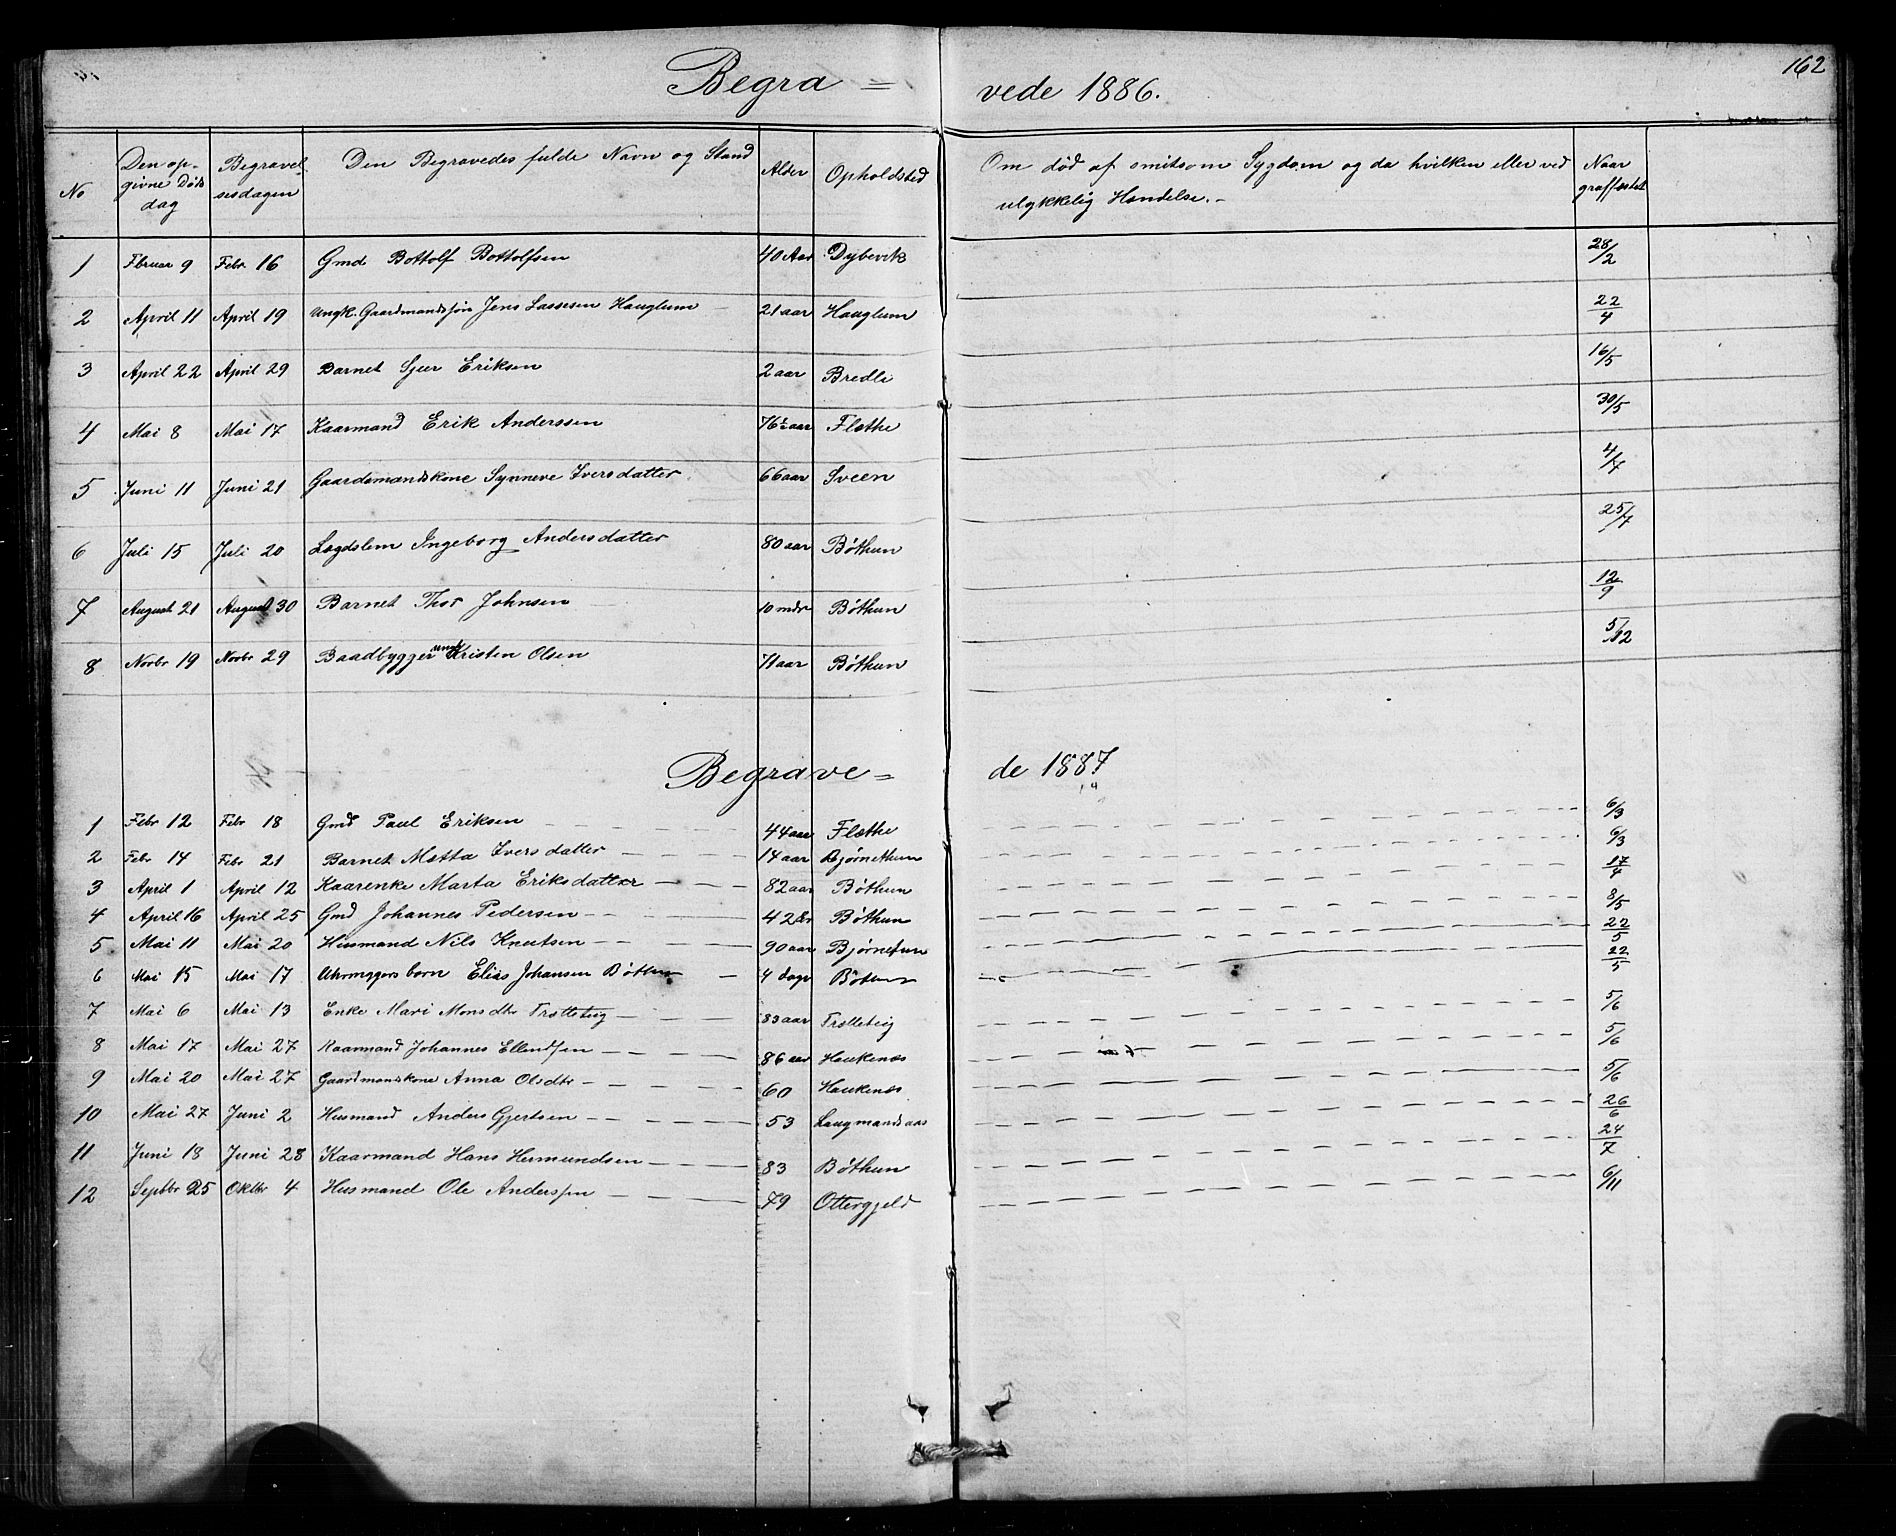 Begra = vede 1886. 162
No | Den opgivne Døds dag | Begravelsesdagen | Den Begravedes fulde Navn og Stand | Alder | Opholdsted | Om død af smitsom Sygdom og da hvilken eller ved ulykkelig Hændelse. | Naar graffæstet
1 | Fbruar 9 | Febr 16 | Gmd Bottolf Bottolfsen | 40 Aar | Dybevik | 28/2
2 | April 11 | April 19 | Ungk. Gaardmandssøn Jens Lassesen Hauglum | 21 aar | Hauglum | 22/4
3 | April 22 | April 29 | Barnet Sjur Eriksen | 2 aar | Bredli | 16/5
4 | Mai 8 | Mai 17 | Kaarmand Erik Anderssen | 76½ aar | Flæthe | 30/5
5 | Juni 11 | Juni 21 | Gaardsmandskone Synneve Iversdatter | 66 aar | Sveen | 4/7
6 | Juli 15 | Juli 20 | Lægdslem Ingeborg Andersdatter | 80 aar | Bøthun | 25/7
7 | August 21 | August 30 | Barnet Thor Johnsen | 10 mdr | Bøthun | 12/9
8 | Novbr 19 | Novbr 29 | Baadbygger ungk Kristen Olsen | 71 aar | Bøthun | 5/12
Begrave = de 1887
1 | Febr 12 | Febr 18 | Gmd Paul Eriksen | 44 aar | Flæthe | 6/3
2 | Febr 14 | Febr 21 | Barnet Metta Iversdatter | 14 aar | Bjørnethun | 6/3
3 | April 1 | April 12 | Kaarenke Marta Eriksdatter | 82 aar | Bøthun | 17/4
4 | April 16 | April 25 | Gmd Johannes Pedersen | 42 | Bøthun | 8/5
5 | Mai 11 | Mai 20 | Husmand Nils Knutsen | 90 aar | Bjørnetun | 22/5
6 | Mai 15 | Mai 17 | barn Elias Johansen Bøthun | 4 dage | Bøthun | 22/5
7 | Mai 6 | Mai 13 | Enke Mari Monsdtr Trætteteig | 83 aar | Trætteteig | 5/6
8 | Mai 17 | Mai 27 | Kaarmand Johannes Ellendsen | 86 aar | Haukenæs | 5/6
9 | Mai 20 | Mai 27 | Gaardmandskone Anna Olsdtr | 60 | Haukenæs | 5/6
10 | Mai 27 | Juni 2 | Husmand Anders Gjertsen | 53 | Laugmandsaas | 26/6
11 | Juni 18 | Juni 28 | Kaarmand Hans Hermundsen | 83 | Bøthun | 24/7
12 | Septbr 25 | Oktbr 4 | Husmand Ole Anderssen | 79 | Ottergjeld | 6/11